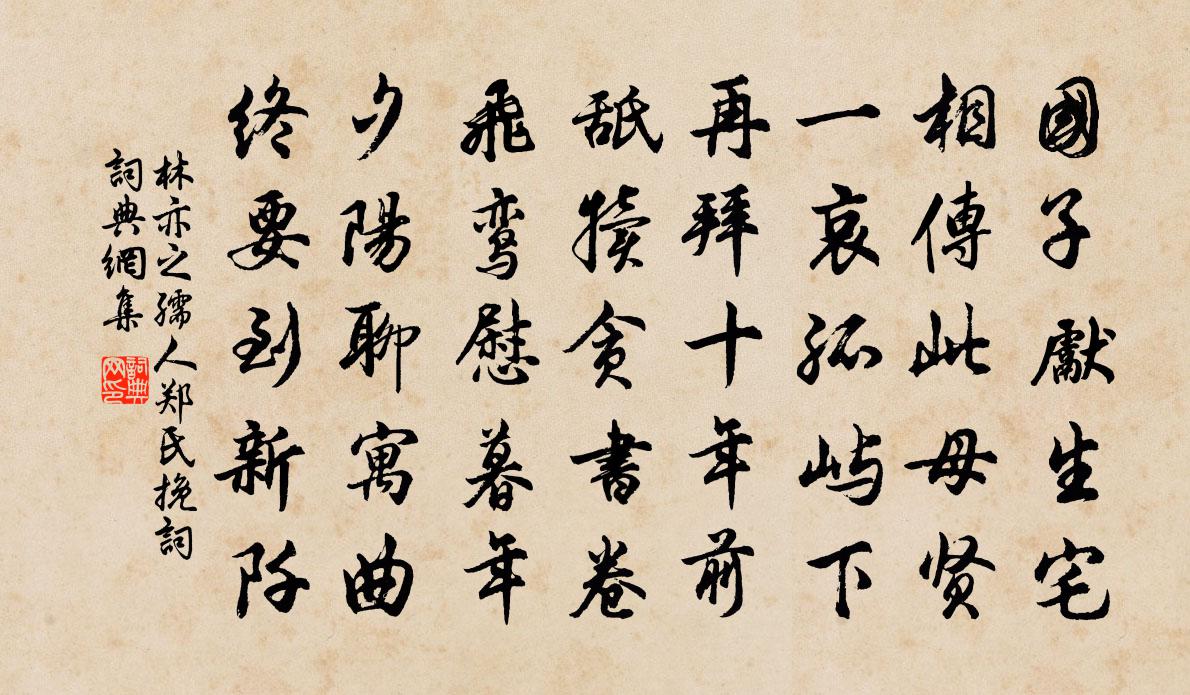 國子獻生宅
相傳此母贤
一哀孤屿下
再拜十年前
舐犢贪書卷
飛鸾慰暮年
夕陽聊寓曲
終要到新阡
林亦之孺人郑氏挽詞
詞典網集
詞典网印